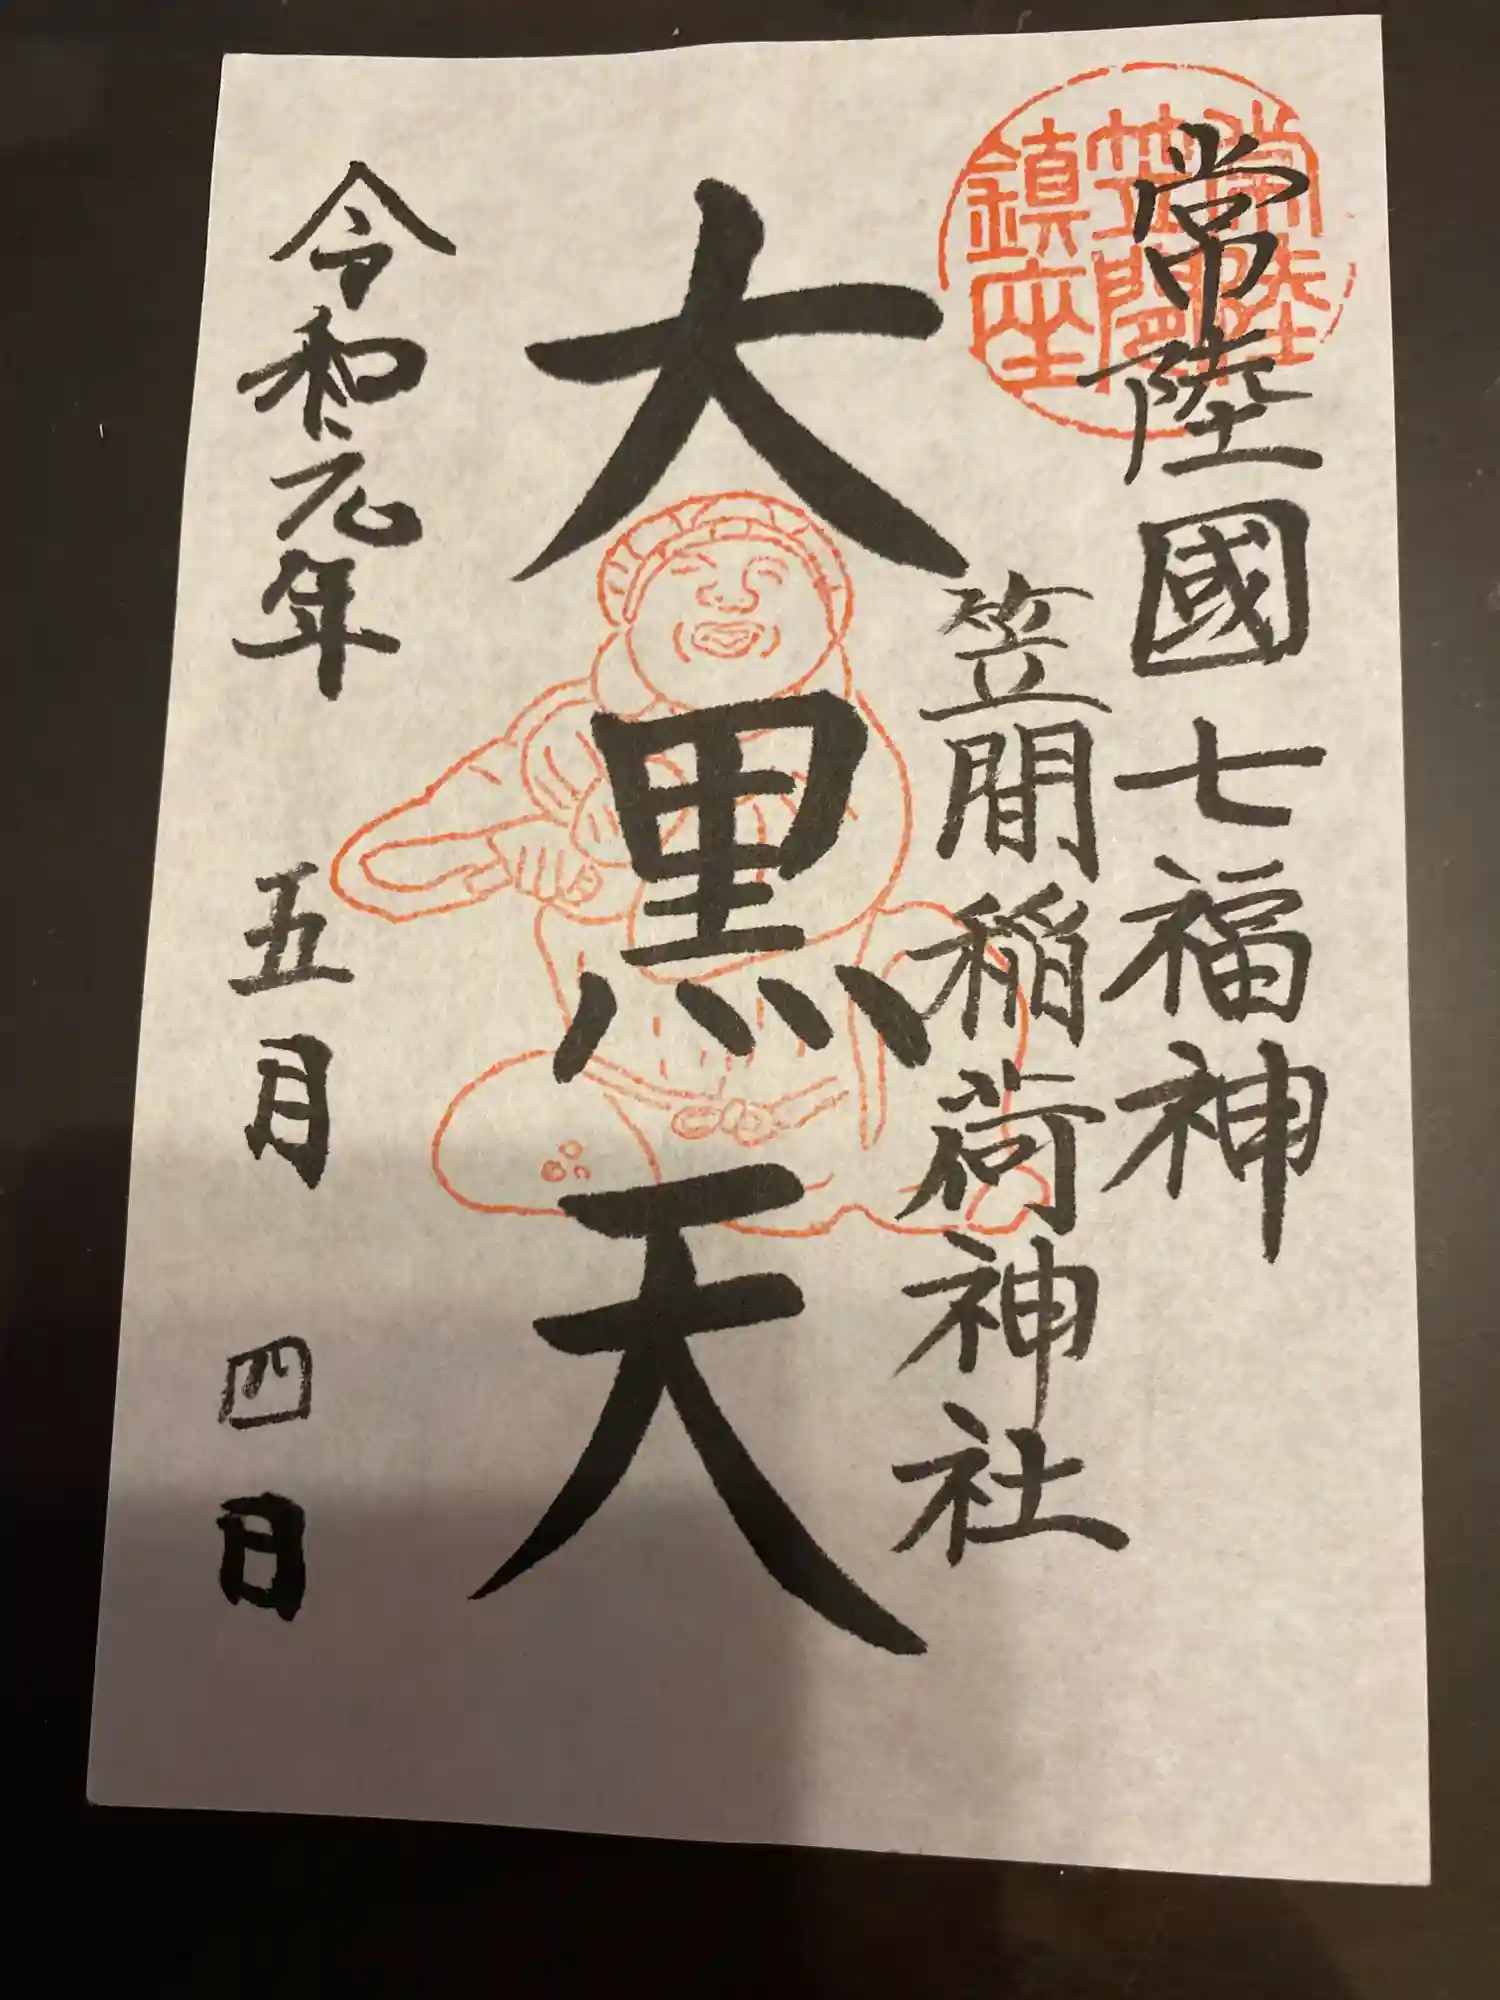 常陸國七福神
笠間稲荷神社
大黒天
令和元年 五月 四日
常陸
笠間
鎮座